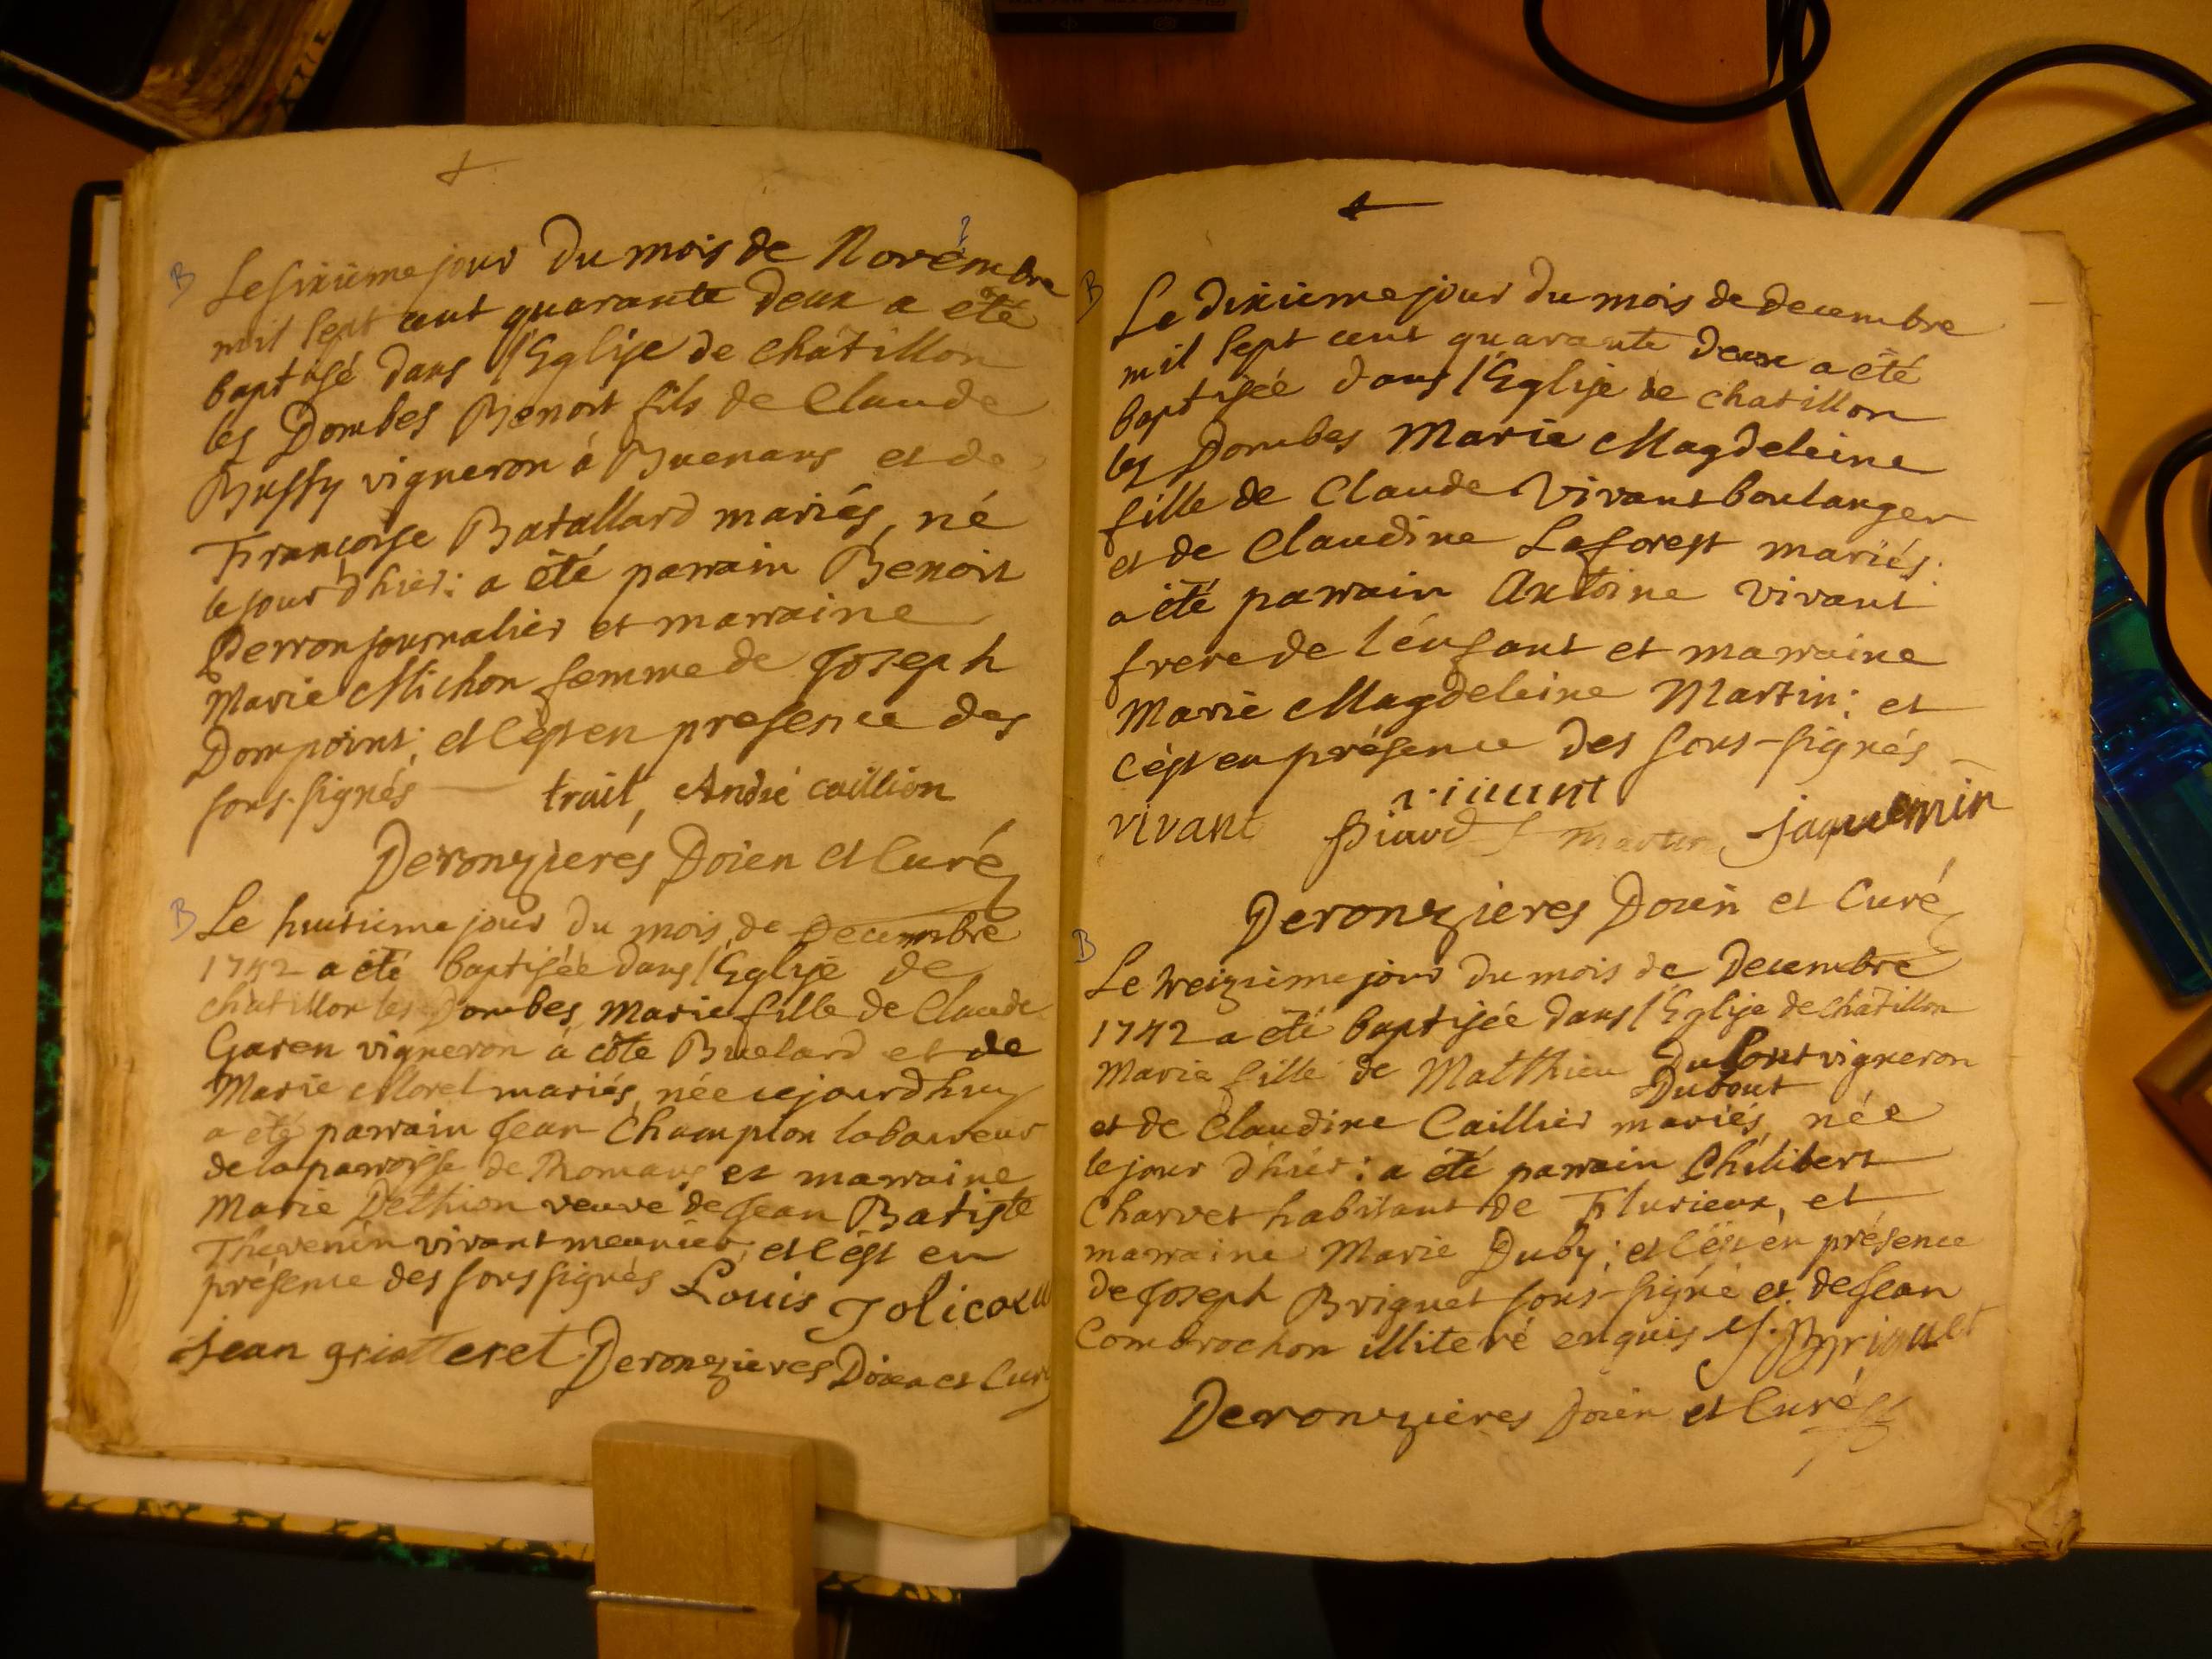 B Le sixième jour Du mois de Novémbre
mil sept cent quarante Deux a été
baptisé dans l'Eglise de chatillon
les Dombes Benoit fils de Claude
Bussy vigneron à Buenans et de
Françoise Batallard mariés, né
le jour d'hier: a été parrain Benoit
Perron journalier et marraine
Marie Michon femme de Joseph
Dompoint; et c'est en presence des
sous-signés trait, André caillion
Deronzieres Doien et Curé
B Le huitieme jour du mois de Decembre
1742 a été baptisée dans l'Eglise de
chatillon les Dombes Marie fille de Claude
Garen vigneron à côte Buelard et de
Marie Morel mariés, née cejourdhuy
a été parrain Jean Champion laboureur
de la parroisse de Romans et marraine
Marie Dethion veuve de Jean Batiste
Thevenin vivant meunier; et c'est en
présence des sous signés Louis Jolicoeu
jean griatteret Deronzieres Doien et Curé
B Le Dixieme jour du mois de decembre
mil sept cent quarante Deux a été
baptisée dans l'Eglise de chatillon
les Dombes Marie Magdeleine
fille de Claude Vivant boulanger
et de Claudine Laforest mariés:
a été parrain Antoine vivant
frere de l'énfant et marraine
Marie Magdeleine Martin; et
c'est en présence des sous-signés
vivant
vivant martin jaquemin
Deronzieres Doien et Curé
B Le treizieme jour du mois de Decembre
1742 a été baptisée dans l'Eglise de chatillon
Marie fille de Matthieu vigneron
Dubout
et de Claudine Caillier mariés, née
le jour d'hier: a été parrain Philibert
Charvet habitant de Flurieux, et
marraine Marie Duby; et c'est en présence
de Joseph Briguet sous-signé et de Jean
Combrochon illiteré enquis J. Briguet
Deronzieres Doien et Curé